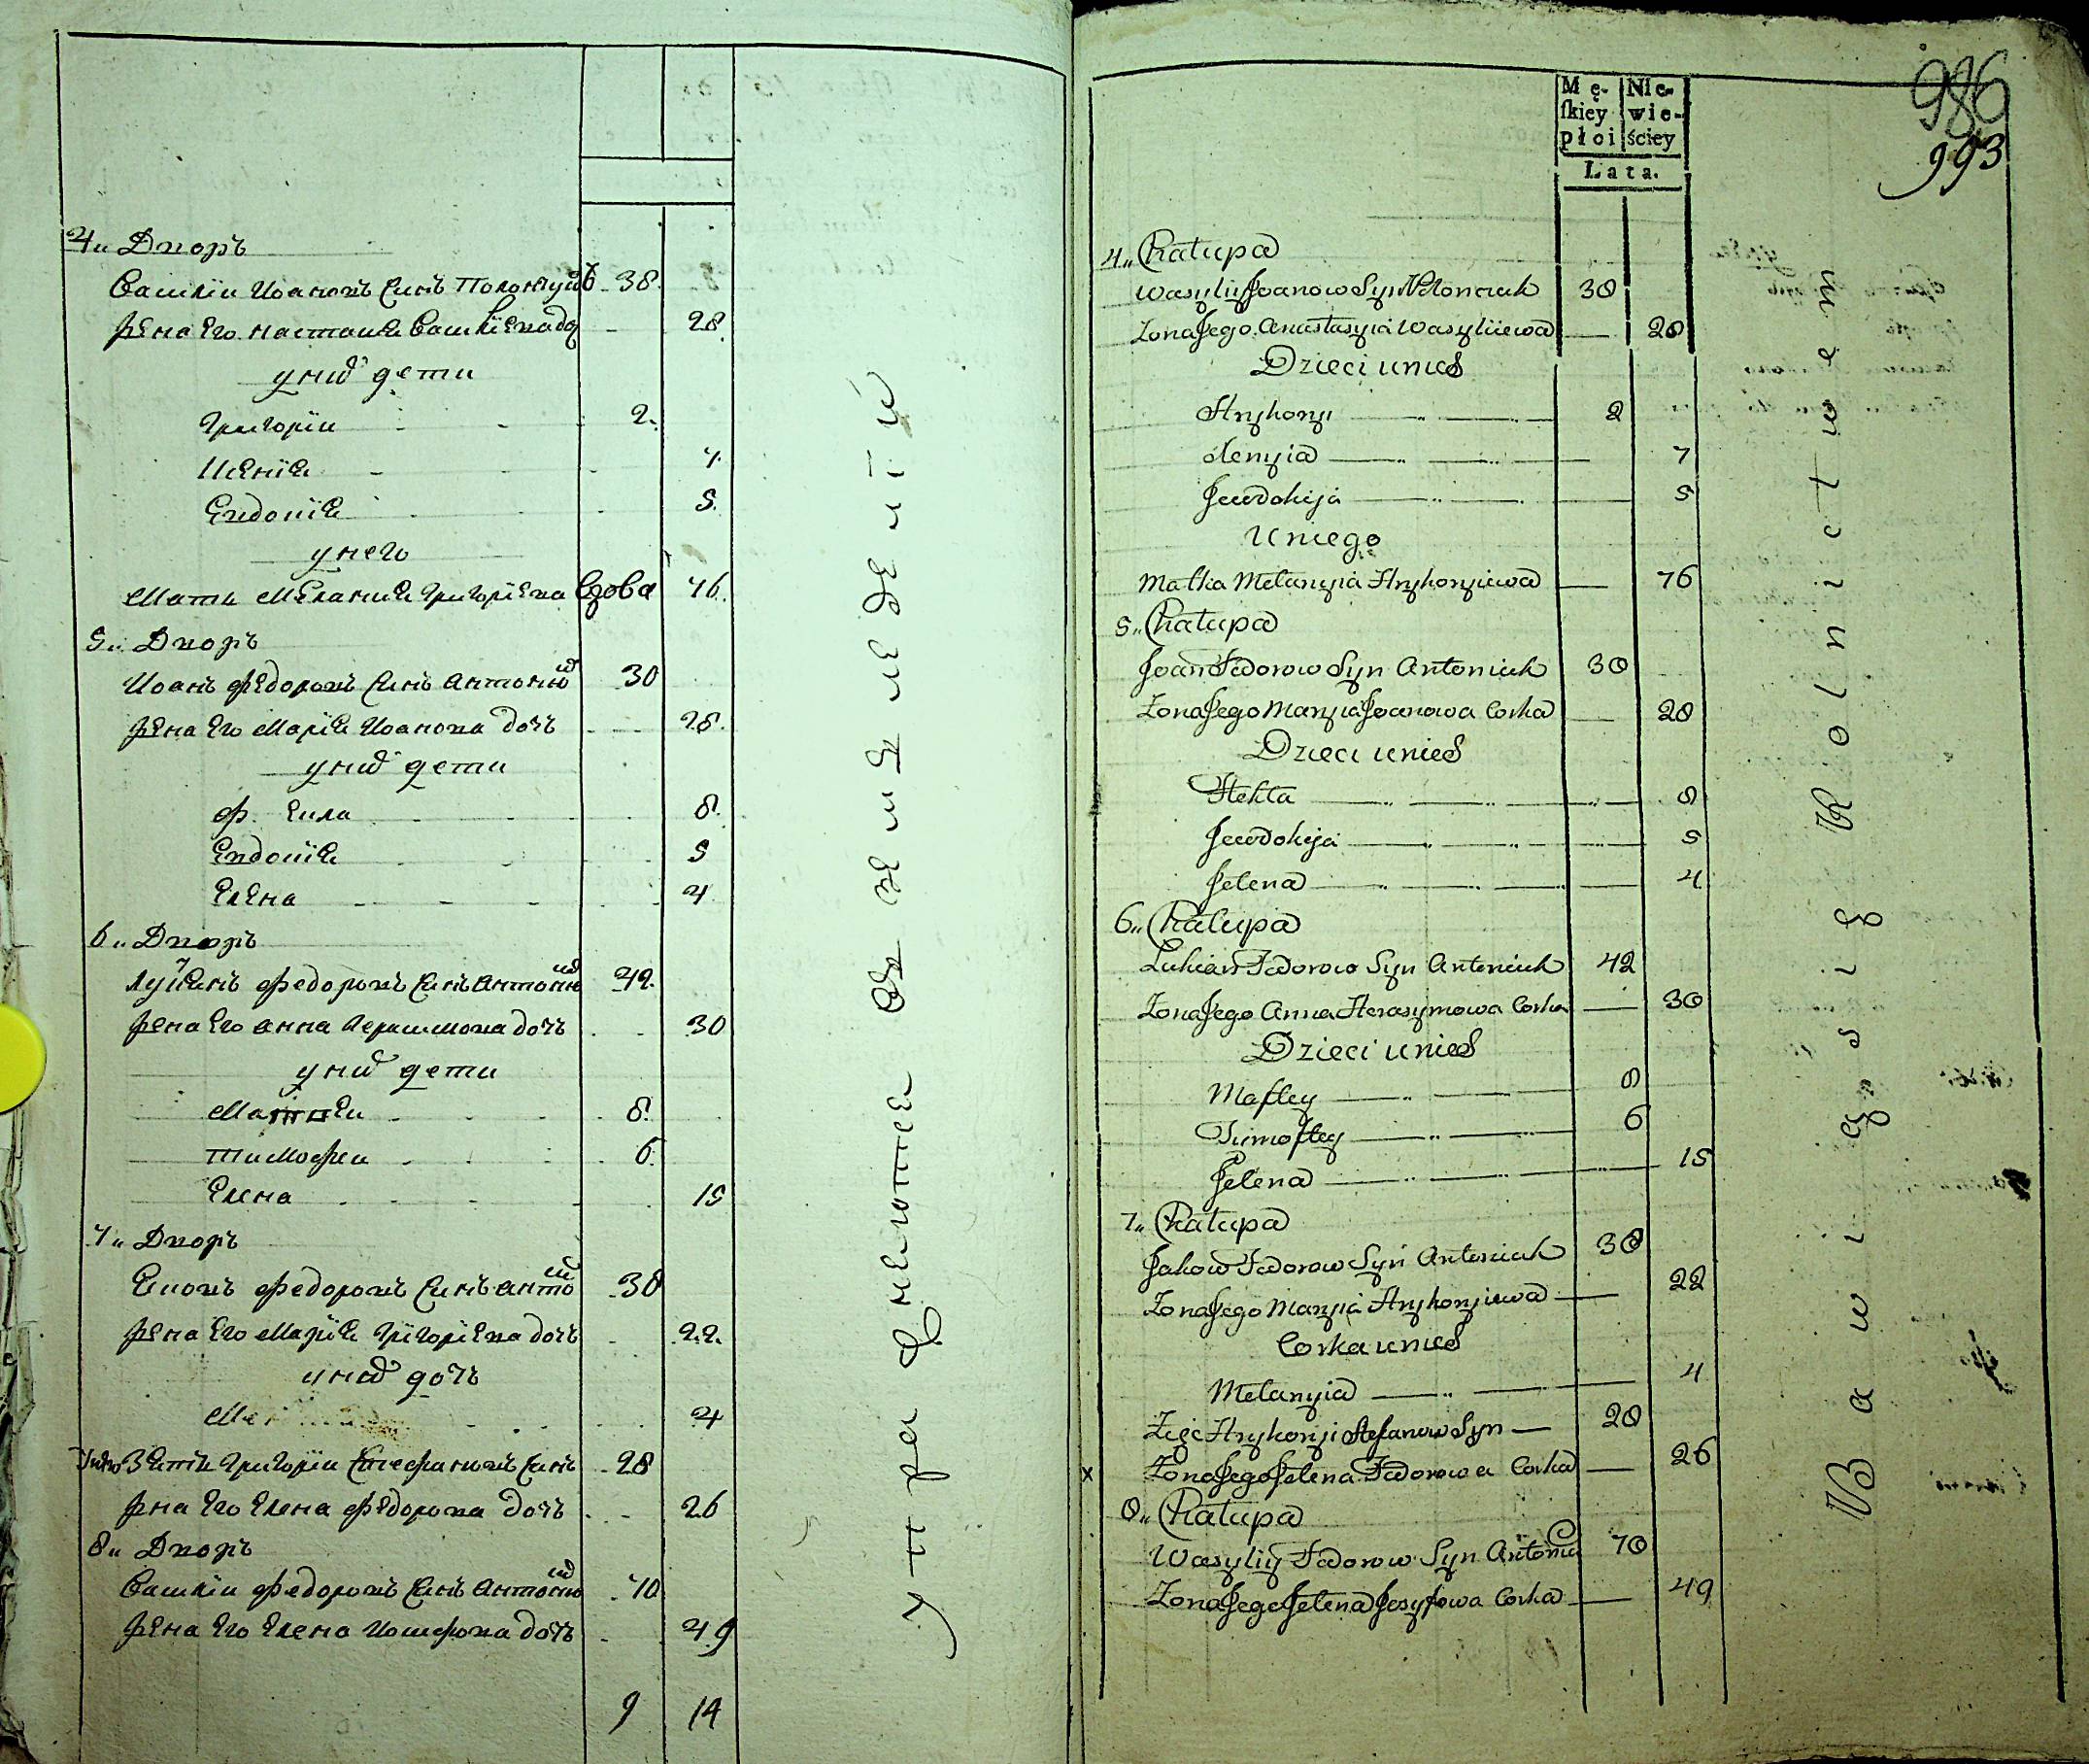 4„ Дворъ
Василіи Иоановъ синъ Полончукъ 38.
жена Его настасия Василіева доч 28
у нихъ дети
Григоріи 2.
Ксеніа 7.
Евдокіа 5.
у него
Мати Меланиа Григоріева вдова 76.
5„ Дворъ
Иоанъ Федоровъ синъ антонюк 30
жена Его Маріа Иоанова дочъ 28.
у нихъ дети
Ф. екла 8.
Евдокіа 5
Елена 4
6„ Дворъ
Лукианъ Федоровъ синъ антонюк 42.
жена Его анна Герасимова дочъ 30
у нихъ дети
Матфеи 8.
тимофеи 6.
Елена 15
7„ Дворъ
Яковъ Федоровъ синъ антонюк 38
жена Его Маріа Григоріева дочъ 22.
у нихъ дочъ
Ме 4
Зять Григоріи Стефановъ синъ 28
жена Его Елена Федорова дочъ 26
8„ Дворъ
Василіи Федоровъ синъ антонюк 70
жена Его Елена Иосифова дочъ 49
9 14
упражняютса в земледелїи
986
993
Mę-skiey płoi
Nie-wie-ściey
Lata.
4„ Chałupa
Wasyliy Joanow Syn Połonczuk 38
Zona Jego Anastasyia Wasyliiewa 28
Dzieci u nich
Hryhoryi 2
Xenyia 7
Jewdokija 5
U niego
Matka Melanyia Hryhoryiewa 76
5„ Chałupa
Joan Fedorow Syn Antoniuk 30
Zona Jego Maryia Joanowa Corka 28
Dzieci u nich
Thekla 8
Jewdokija 5
Jelena 4
6„ Chałupa
Lukian Fedorow Syn Antoniuk 42
Zona Jego Anna Herasymowa Corka 30
Dzieci u nich
Maftey 8
Timoftey 6
Jelena 15
7„ Chałupa
Jakow Fedorow Syn Antoniuk 38
Zona Jego Maryia Hryhoryiewa 22
Corka u nich
Melanyia 4
Zięć Hryhoryi Stefanow Syn 28
x Zona Jego Jelena Fedorowa Corka 26
8„ Chałupa
Wasyliy Fedorow Syn Antoniuk 70
Zona Jego Jelena Josyfowa Corka 49
Bawią się Rolnictwem